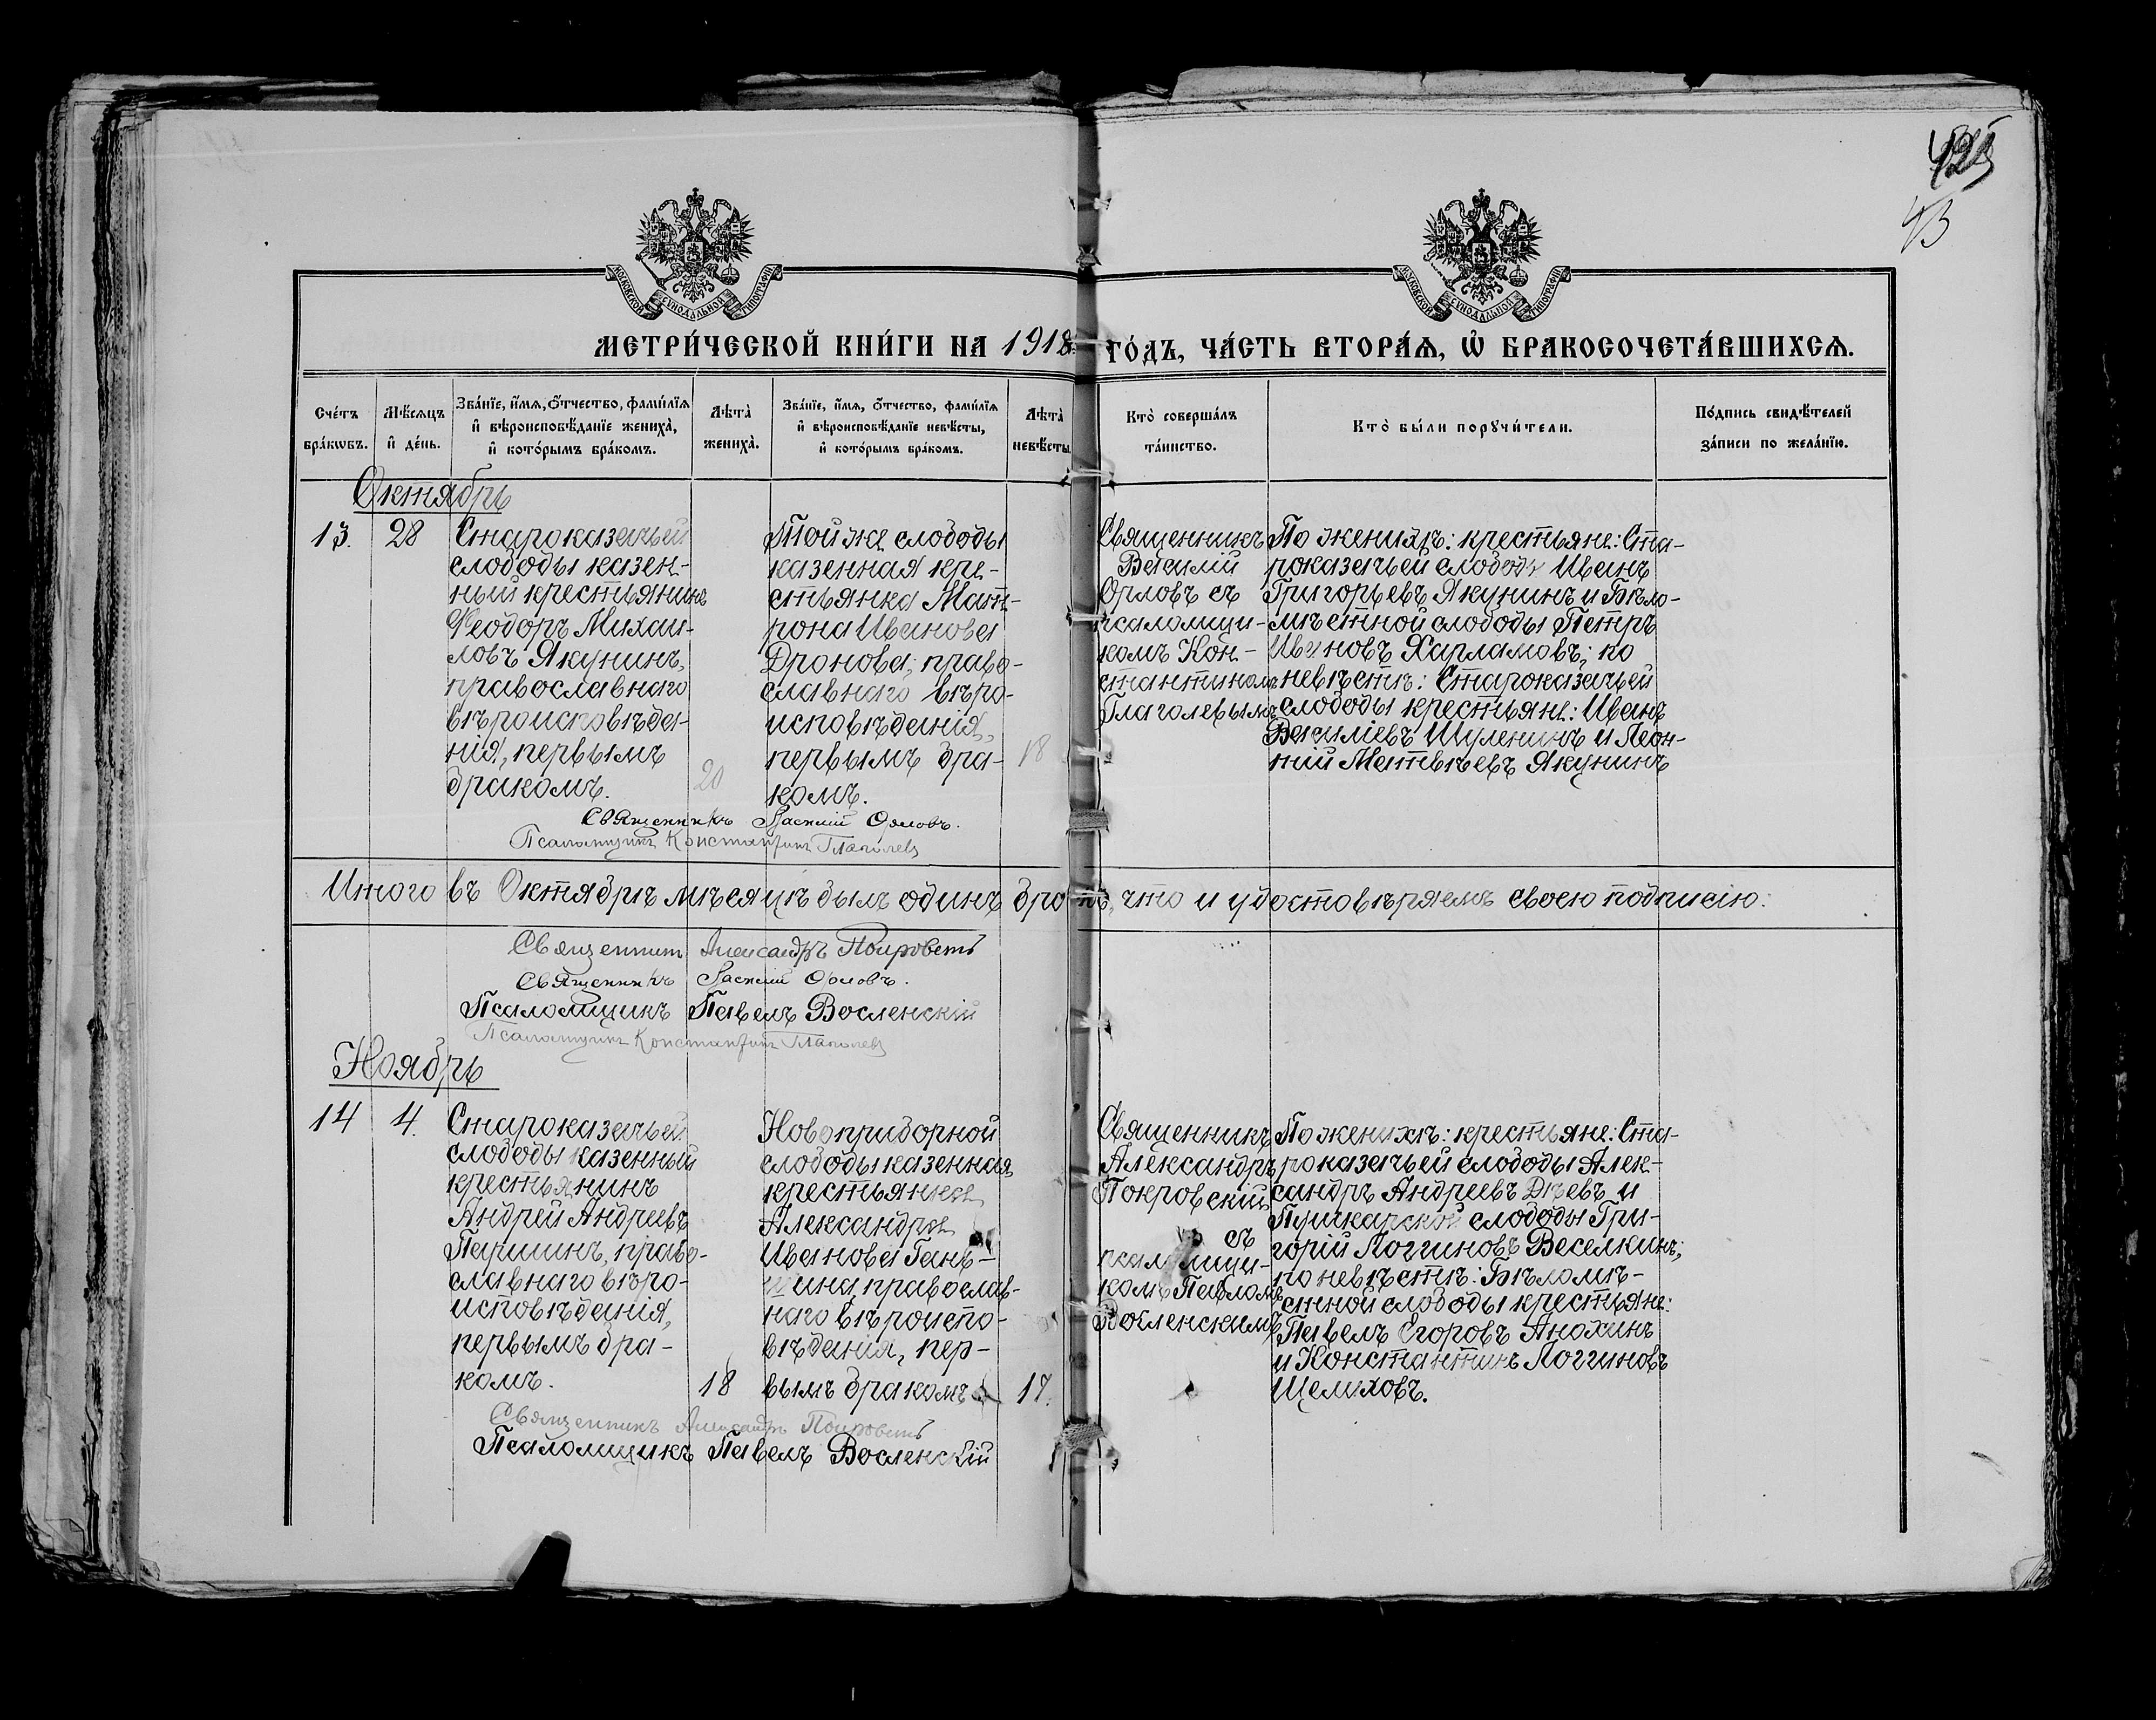 425
43
МОСКОВСКОЙ СѴНОДАЛЬНОЙ ТИПОГРАФІИ
МОСКОВСКОЙ СѴНОДАЛЬНОЙ ТИПОГРАФІИ
МЕТРИ́ЧЕСКОЙ КНИ́ГИ НА 1918 ГО́ДЪ, ЧА́СТЬ ВТОРА́Ѧ, Ѽ БРАКОСОЧЕТА́ВШИХСѦ.
Сче́тъ
бра́кωвъ.
Мѣ́сѧцъ
и҆ де́нь.
Зва́нїе, и҆́мѧ, ѻ҆́тчество, фами́лїѧ
и҆ вѣроисповѣ́данїе жениха̀,
и҆ кото́рымъ бра́комъ.
Лѣта̀
жениха̀.
Зва́нїе, и҆́мѧ, ѻ҆́тчество, фами́лїѧ
и҆ вѣроисповѣ́данїе невѣ́сты,
и҆ кото́рымъ бра́комъ.
Лѣта̀
невѣ́сты.
Кто̀ соверша́лъ
та́инство.
Кто̀ бы́ли порꙋчи́тели.
По́дпись свидѣ́телей
за́писи по жела́нїю.
Октябрь
13.
28
Староказачьей
слободы казен-
ный крестьянинъ
Феодоръ Михаи-
ловъ Якунинъ,
православнаго
вѣроисповѣда-
нія, первымъ
бракомъ.
20
Той же слободы
казенная кре-
стьянка Мат-
рона Иванова
Дронова, право-
славнаго вѣро-
исповѣданія,
первымъ бра-
комъ.
18
Священникъ
Василій
Орловъ съ
псаломщи-
комъ Кон-
стантиномъ
Глаголевымъ
По женихѣ: крестьяне: Ста-
роказачьей слободы Иванъ
Григорьевъ Якунинъ и Бѣло-
мѣстной слободы Петръ
Ивановъ Харламовъ; по
невѣстѣ: Староказачьей
слободы крестьяне: Иванъ
Василіевъ Шуленинъ и Леон-
тій Матвѣевъ Якунинъ
Священникъ Василій Орловъ.
Псаломщикъ Константинъ Глаголевъ
Итого въ Октябрѣ мѣсяцѣ былъ одинъ бракъ, что и удостовѣряемъ своею подписію:
Священникъ Александръ Покровскій
Священникъ Василій Орловъ.
Псаломщикъ Павелъ Восленскій
Псаломщикъ Константинъ Глаголевъ
Ноябрь
14
4.
Староказачьей
слободы казенный
крестьянинъ
Андрей Андреевъ
Паршинъ, право-
славнаго вѣро-
исповѣданія,
первымъ бра-
комъ.
18
Новоприборной
слободы казенная
крестьянка
Александра
Иванова Гань-
шина, православ-
наго вѣроиспо-
вѣданія, пер-
вымъ бракомъ
17.
Священникъ
Александръ
Покровскій
съ
псаломщи-
комъ Павломъ
Восленскимъ
По женихѣ: крестьяне: Ста-
роказачьей слободы Алек-
сандръ Андреевъ Дѣевъ и
Пушкарской слободы Гри-
горій Логгиновъ Веселкинъ;
по невѣстѣ: Бѣломѣ-
стной слободы крестьяне:
Павелъ Егоровъ Анохинъ
и Константинъ Логгиновъ
Щелиховъ.
Священникъ Александръ Покровскій
Псаломщикъ Павелъ Восленскій